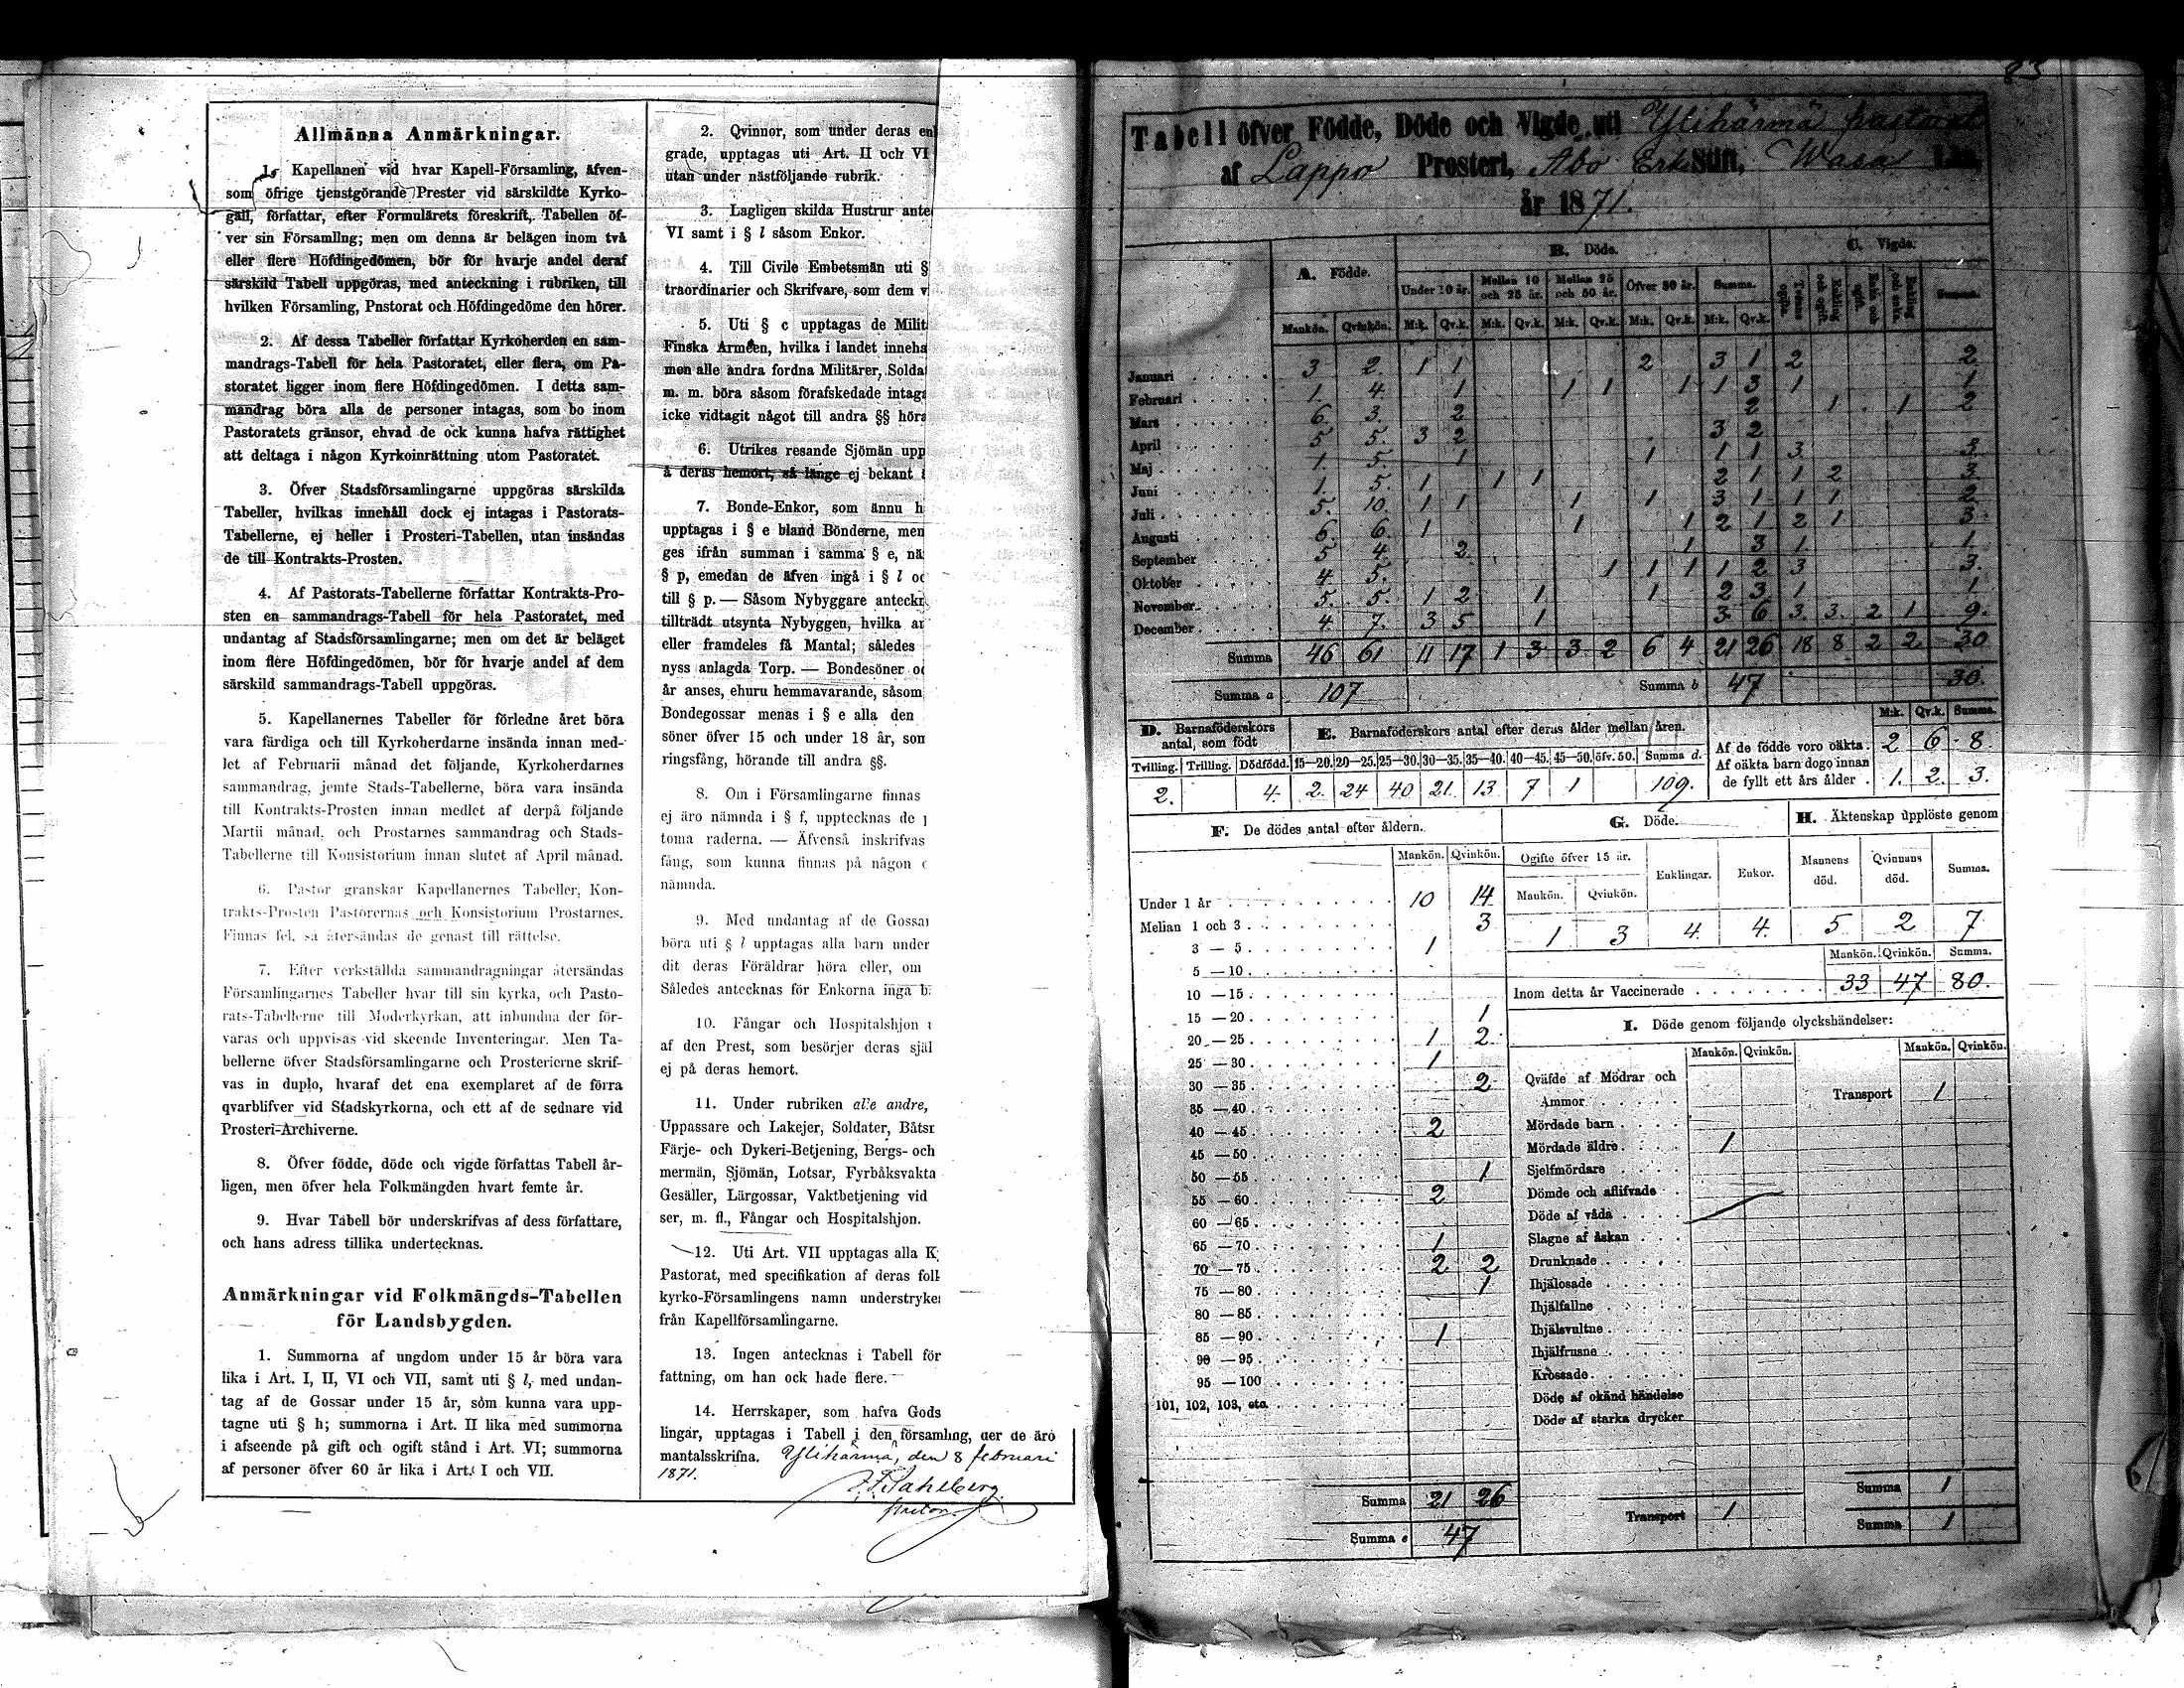 Allmänna Anmärkningar.
1. Kapellanen vid hvar Kapell-Församling, äfven-
som öfrige tjenstgörande Prester vid särskildte Kyrko-
gäll, författar, efter Formulärets föreskrift, Tabellen öf-
ver sin Församling; men om denna är belägen inom två
eller flere Höfdingedömen, bör för hvarje andel deraf
särskild Tabell uppgöras, med anteckning i rubriken, till
hvilken Församling, Pastorat och Höfdingedöme den hörer.
2. Af dessa Tabeller författar Kyrkoherden en sam-
mandrags-Tabell för hela Pastoratet, eller flera, om Pa-
storatet ligger inom flere Höfdingedömen. I detta sam-
mandrag böra alla de personer intagas, som bo inom
Pastoratets gränsor, ehvad de ock kunna hafva rättighet
att deltaga i någon Kyrkoinrättning utom Pastoratet.
3. Öfver Stadsförsamlingarne uppgöras särskilda
Tabeller, hvilkas innehåll dock ej intagas i Pastorats-
Tabellerne, ej heller i Prosteri-Tabellen, utan insändas
de till Kontrakts-Prosten.
4. Af Pastorats-Tabellerne författar Kontrakts-Pro-
sten en sammandrags-Tabell för hela Pastoratet, med
undantag af Stadsförsamlingarne; men om det är beläget
inom flere Höfdingedömen, bör för hvarje andel af dem
särskild sammandrags-Tabell uppgöras.
5. Kapellanernes Tabeller för förledne året böra
vara färdiga och till Kyrkoherdarne insända innan med-
let af Februarii månad det följande, Kyrkoherdarnes
sammandrag, jemte Stads-Tabellerne, böra vara insända
till Kontrakts-Prosten innan medlet af derpå följande
Martii månad, och Prostarnes sammandrag och Stads-
Tabellerne till Konsistorium innan slutet af April månad.
6. Pastor granskar Kapellanernes Tabeller, Kon-
trakts-Prosten Pastorernas och Konsistorium Prostarnes.
Finnas fel, så återsändas de genast till rättelse.
7. Efter verkställda sammandragningar återsändas
Församlingarnes Tabeller hvar till sin kyrka, och Pasto-
rats-Tabellerne till Moderkyrkan, att inbundna der för-
varas och uppvisas vid skeende Inventeringar. Men Ta-
bellerne öfver Stadsförsamlingarne och Prosterierne skrif-
vas in duplo, hvaraf det ena exemplaret af de förra
qvarblifver vid Stadskyrkorna, och ett af de sednare vid
Prosteri-Archiverne.
8. Öfver födde, döde och vigde författas Tabell år-
ligen, men öfver hela Folkmängden hvart femte år.
9. Hvar Tabell bör underskrifvas af dess författare,
och hans adress tillika undertecknas.
Anmärkningar vid Folkmängds-Tabellen
för Landsbygden.
1. Summorna af ungdom under 15 år böra vara
lika i Art. I, II, VI och VII, samt uti § l, med undan-
tag af de Gossar under 15 år, som kunna vara upp-
tagne uti § h; summorna i Art. II lika med summorna
i afseende på gift och ogift stånd i Art. VI; summorna
af personer öfver 60 år lika i Art. I och VII.
2. Qvinnor, som under deras en
grade, upptagas uti Art. II och VI
utan under nästföljande rubrik.
3. Lagligen skilda Hustrur ante
VI samt i § l såsom Enkor.
4. Till Civile Embetsmän uti §
traordinarier och Skrifvare, som dem v
5. Uti § c upptagas de Milit
Finska Armeen, hvilka i landet inneha
men alle andra fordna Militärer, Solda
m. m. böra såsom förafskedade intaga
icke vidtagit något till andra §§ höra
6. Utrikes resande Sjömän upp
å deras hemort, så länge ej bekant
7. Bonde-Enkor, som ännu h
upptagas i § e bland Bönderne, men
ges ifrån summan i samma § e, nä
§ p, emedan de äfven ingå i § l oc
till § p. — Såsom Nybyggare anteckn
tillträdt utsynta Nybyggen, hvilka an
eller framdeles få Mantal; således
nyss anlagda Torp. — Bondesöner oc
år anses, ehuru hemmavarande, såsom
Bondegossar menas i § e alla den
söner öfver 15 och under 18 år, som
ringsfång, hörande till andra §§.
8. Om i Församlingarne finnas
ej äro nämnda i § f, upptecknas de
toma raderna. — Äfvenså inskrifvas
fång, som kunna finnas på någon
nämnda.
9. Med undantag af de Gossar
böra uti § l upptagas alla barn under
dit deras Föräldrar höra eller, om
Således antecknas för Enkorna inga b
10. Fångar och Hospitalshjon
af den Prest, som besörjer deras själ
ej på deras hemort.
11. Under rubriken alle andre,
Uppassare och Lakejer, Soldater, Båts
Färje- och Dykeri-Betjening, Bergs- och
mermän, Sjömän, Lotsar, Fyrbåksvakta
Gesäller, Lärgossar, Vaktbetjening vid
ser, m. fl., Fångar och Hospitalshjon.
12. Uti Art. VII upptagas alla K
Pastorat, med specifikation af deras folk
kyrko-Församlingens namn understryke
från Kapellförsamlingarne.
13. Ingen antecknas i Tabell för
fattning, om han ock hade flere.
14. Herrskaper, som hafva Gods
lingar, upptagas i Tabell i den församling, der de äro
mantalsskrifna. Ylihärmä, den 8 februari
1871.
83
Tabell öfver Födde, Döde och Vigde uti Ylihärmä pastorat
af Lappo Prosteri, Åbo Erke Stift, Wasa Län,
år 1871.
A. Födde. B. Döde. C. Vigde.
Under 10 år. Mellan 10 och 25 år. Mellan 25 och 50 år. Öfver 50 år. Summa. Tvänne ogifta. Enkling och ogift. Enka och ogift. Enkling och enka. Summa.
Mankön. Qvinkön. M:k. Qv.k. M:k. Qv.k. M:k. Qv.k. M:k. Qv.k. M:k. Qv.k.
Januari 3 2 1 1 2 3 1 2 2
Februari 1 4 1 1 1 1 1 3 1 1
Mars 6 3 2 2 1 1 2
April 5 5 3 2 3 2
Maj 1 5 1 1 1 1 3 3
Juni 1 5 1 1 1 2 1 1 2 3
Juli 5 10 1 1 1 1 3 1 1 1 2
Augusti 6 6 1 1 1 2 1 2 1 3
September 5 4 2 1 3 1 1
Oktober 4 5 1 1 1 1 2 3 3
November 5 5 1 2 1 1 2 3 1 1
December 4 7 3 5 1 3 6 3 3 2 1 9
Summa 46 61 11 17 1 3 3 2 6 4 21 26 18 8 2 2 30
Summa a 107 Summa b 47 30
D. Barnaföderskors antal, som födt
Tvilling. Trilling. Dödfödd.
2. 4.
E. Barnaföderskors antal efter deras ålder mellan åren.
15—20. 20—25. 25—30. 30—35. 35—40. 40—45. 45—50. öfv. 50. Summa d.
2 24 40 21 13 7 1 109.
M:k. Qv.k. Summa.
Af de födde voro oäkta 2 6 8
Af oäkta barn dogo innan
de fyllt ett års ålder 1. 2. 3.
F. De dödes antal efter åldern.
Mankön. Qvinkön.
Under 1 år 10 14
Mellan 1 och 3 3
3 — 5 1
5 — 10
10 — 15
15 — 20 1
20 — 25 1 2
25 — 30 1
30 — 35 2
35 — 40
40 — 45 2
45 — 50
50 — 55 1
55 — 60 2
60 — 65
65 — 70 1
70 — 75 2 2
75 — 80 1
80 — 85
85 — 90 1
90 — 95
95 — 100
101, 102, 103, etc.
Summa 21 26
Summa e 47
G. Döde.
Ogifte öfver 15 år. Enklingar. Enkor.
Mankön. Qvinkön.
1 3 4 4
H. Äktenskap upplöste genom
Mannens död. Qvinnans död. Summa.
5 2 7
Mankön. Qvinkön. Summa.
Inom detta år Vaccinerade 33 47 80.
I. Döde genom följande olyckshändelser:
Mankön. Qvinkön. Mankön. Qvinkön.
Qväfde af Mödrar och
Ammor
Mördade barn
Mördade äldre 1
Sjelfmördare
Dömde och aflifvade
Döde af våda
Slagne af åskan
Drunknade
Ihjälosade
Ihjälfallne
Ihjälsvultne
Ihjälfrusne
Krossade
Döde af okänd händelse
Döde af starka drycker
Transport 1
Transport 1
Summa 1
Summa 1